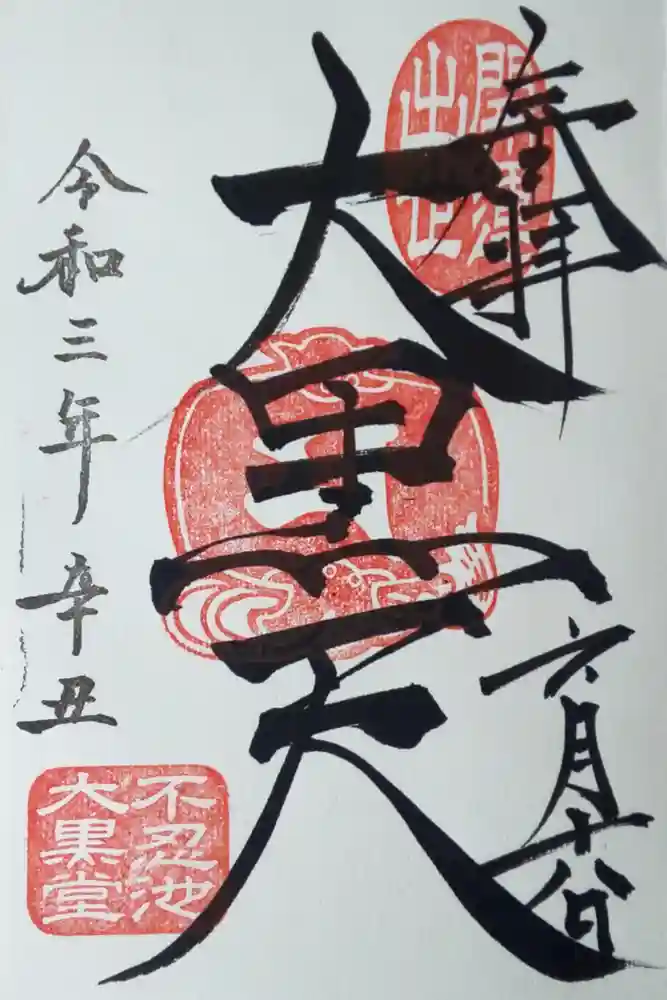 奉拝
六月十八日
大黒天
令和三年辛丑
開運
出世
不忍池
大黒堂